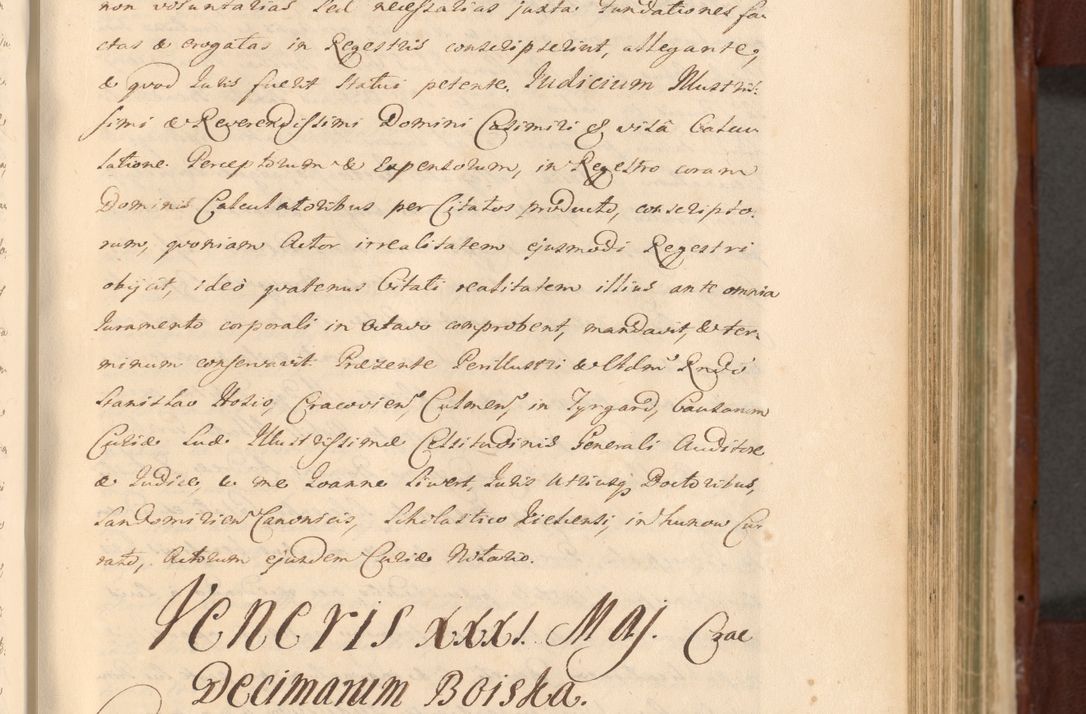 non voluntarias sed necessarias juxta Fundationes fa-
ctas & erogatas in Regestris conscripserint, allegante,
& quod Juris fuerit statui petente. Judicium Illustris-
simi & Reverendissimi Domini Casimiri & visâ Calcu-
latione Perceptorum & Expensorum, in Regestro coram
Dominis Calculatoribus per Citatos producto, conscripto-
rum, quoniam Actor irrealitatem ejusmodi Regestri
objicit, ideò quatenus Citati realitatem illius ante omnia
Juramento corporali in octavo comprobent, mandavit, & ter-
minum conservavit. Præsente Perillustri & Adm Rndo
Stanislao Hosio, Cracovien, Culmen, in Tyrgard, Causarum
Curiæ Suæ Illustrissimæ Celsitudinis Generali Auditore
& Judice, & me Joanne Siwert, Juris Utriusq Doctoribus,
Sandomirien Canonicis, Scholastico Kielcensi, in Kunow Cu-
rato, Actorum ejusdem Curiæ Notario.
Veneris XXXI. Maj. Crac
Decimarum Boiska.